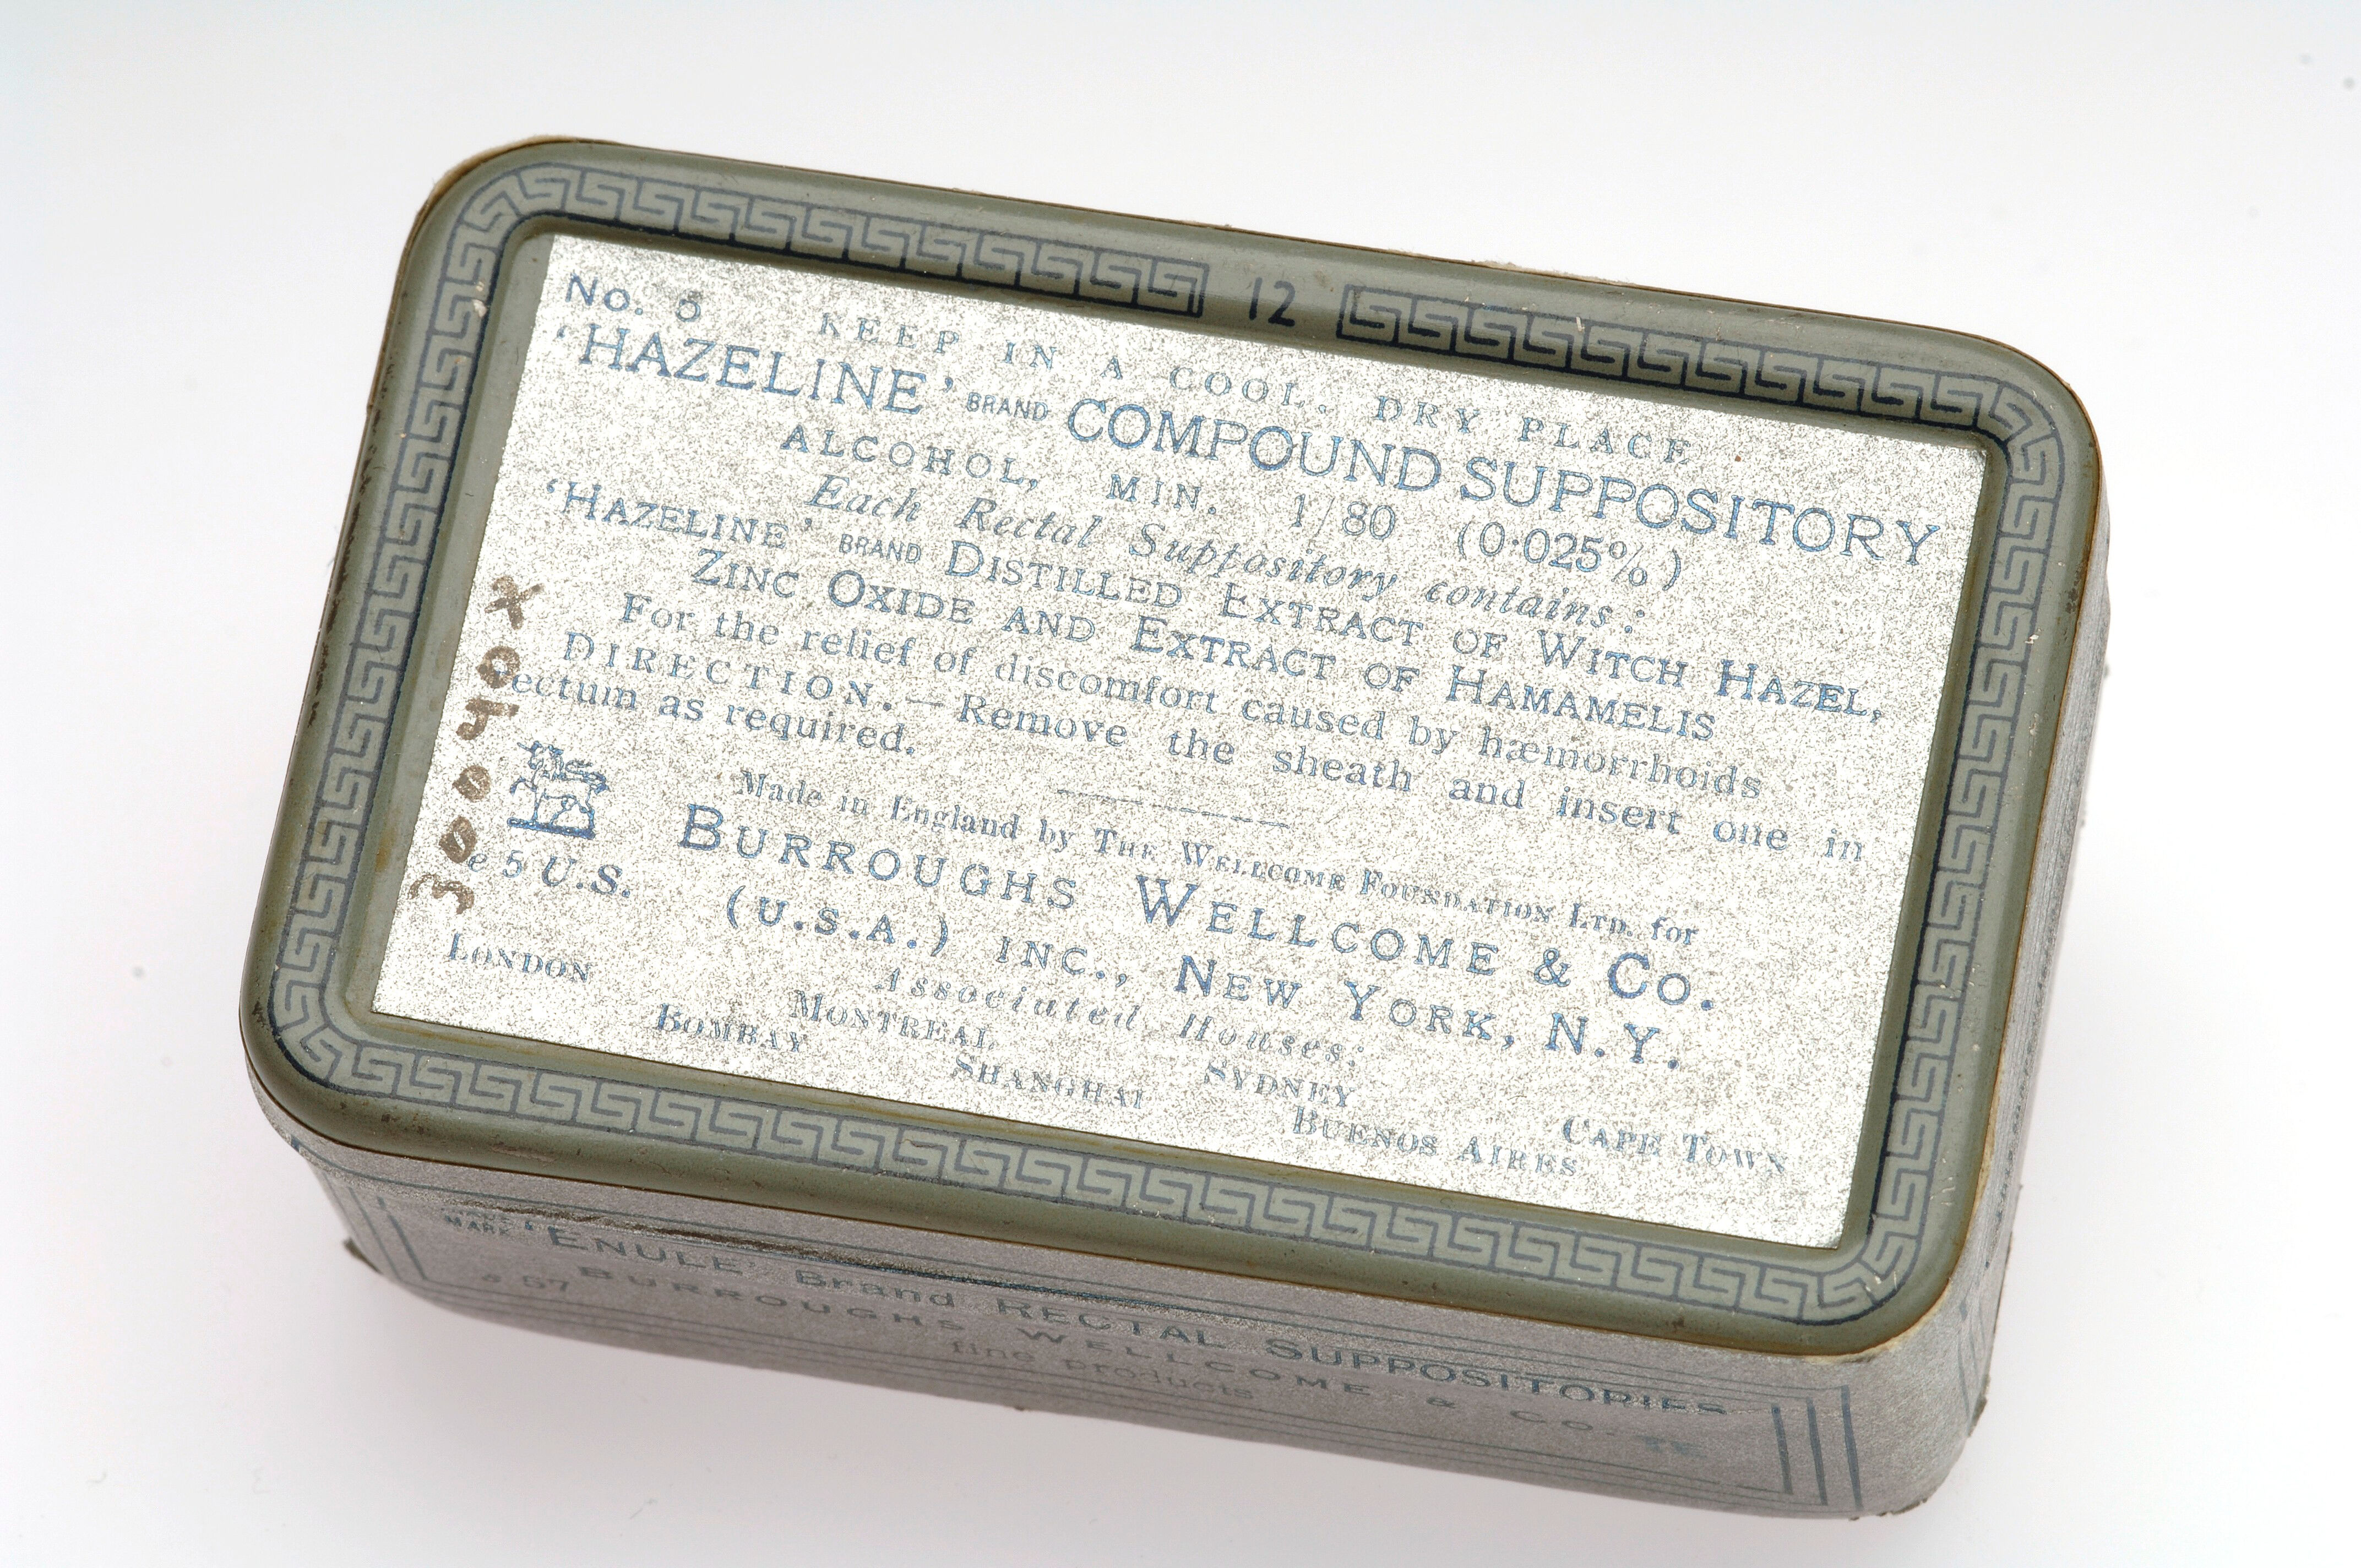 12
No. 5 KEEP IN A COOL, DRY PLACE
'HAZELINE' BRAND COMPOUND SUPPOSITORY
ALCOHOL, MIN. 1/80 (0·025%)
Each Rectal Suppository contains:
'HAZELINE' BRAND DISTILLED EXTRACT OF WITCH HAZEL,
ZINC OXIDE AND EXTRACT OF HAMAMELIS
For the relief of discomfort caused by hæmorrhoids
DIRECTION.—Remove the sheath and insert one in
rectum as required.
Made in England by THE WELLCOME FOUNDATION LTD. for
BURROUGHS WELLCOME & CO.
e 5 U.S. (U.S.A.) INC., NEW YORK, N.Y.
Associated Houses:
LONDON MONTREAL SYDNEY CAPE TOWN
BOMBAY SHANGHAI BUENOS AIRES
MARK 'ENULE' Brand RECTAL SUPPOSITORIES
BURROUGHS WELLCOME & CO.
fine products